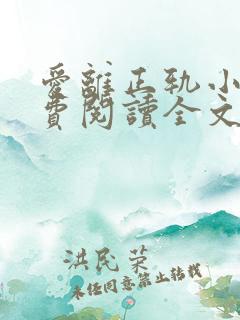 愛離正軌小
費閱讀全文
洪民荣
未经同意禁止转载